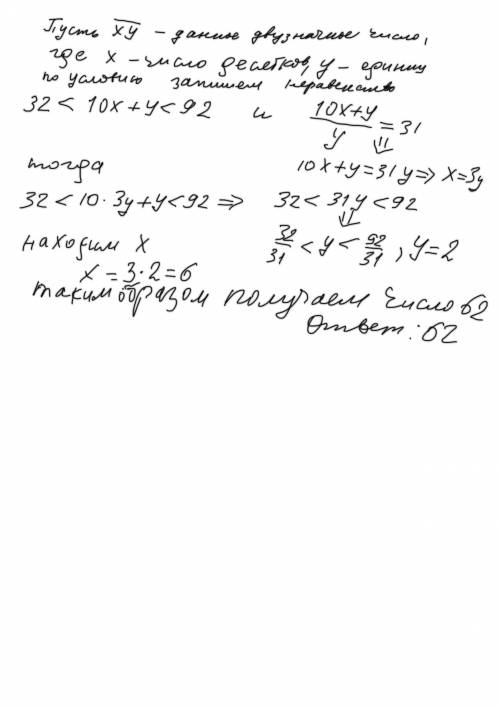 Пусть x̅y̅ – данное двузначное число,
где x – число десятков, y – единиц
по условию запишем неравенство
32 < 10x + y < 92 и (10x+y)/y = 31
⇓
тогда 10x+y=31y ⇒ x=3y
32 < 10·3y + y < 92 ⇒ 32 < 31y < 92
⇓
находим x 32/31 < y < 92/31, y=2
x = 3·2 = 6
таким образом получаем число 62
Ответ: 62